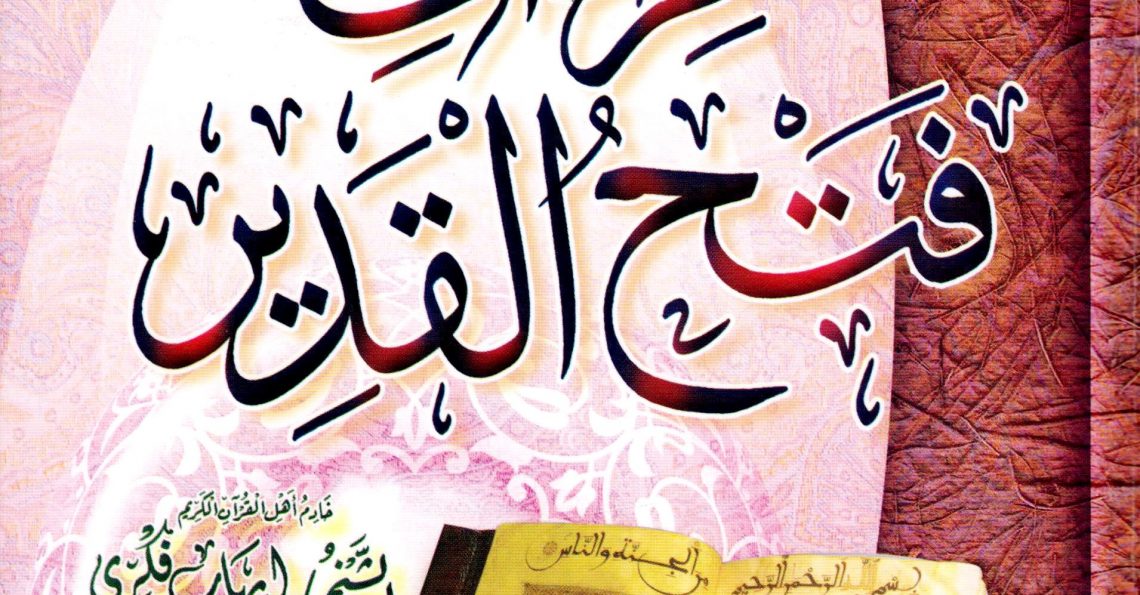 فَتْحُ الْقَدِير
خَادِمُ أَهْلِ الْقُرْآنِ الْكَرِيمِ
الشَّيْخُ إيهاب فِكْرِي
بسم الله الرحمن الرحيم
من الجنة والناس